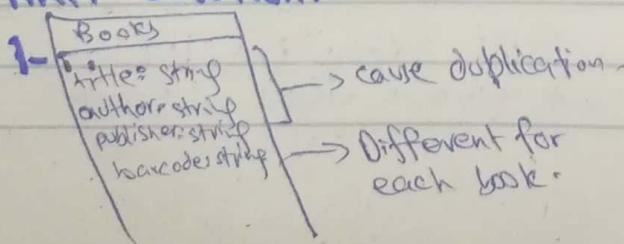 1-
Books
title: string
author: string
publisher: string
barcode: string
→ cause duplication
→ Different for
each book.